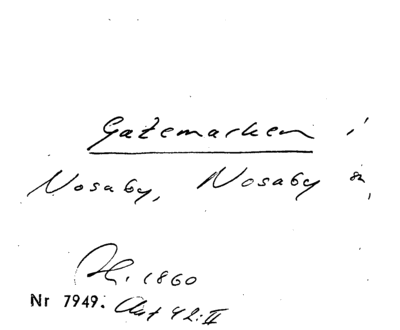 Gatemarken i
Nosaby, Nosaby sn,
H. 1860
Nr 7949. Akt 42:II